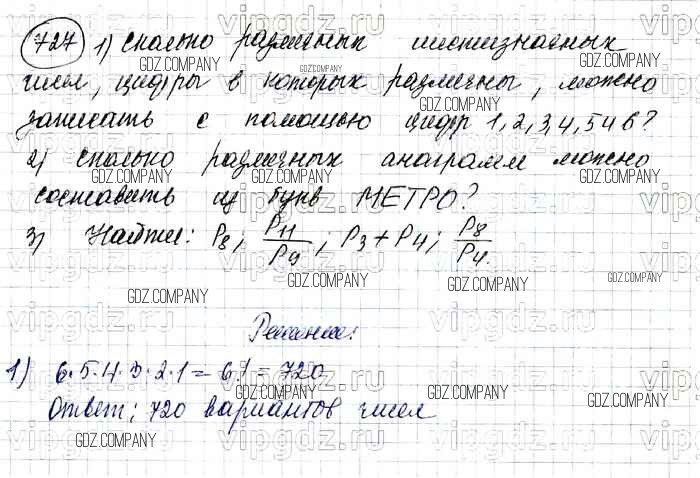 727 1) Сколько различных шестизначных
чисел, цифры в которых различны, можно
записать с помощью цифр 1,2,3,4,5 и 6?
2) Сколько различных анаграмм можно
составить из букв МЕТРО?
3) Найти: P8; P11/P9; P3+P4; P8/P4.
Решение:
1) 6·5·4·3·2·1=6!=720
Ответ: 720 вариантов чисел
GDZ.COMPANY
vipgdz.ru